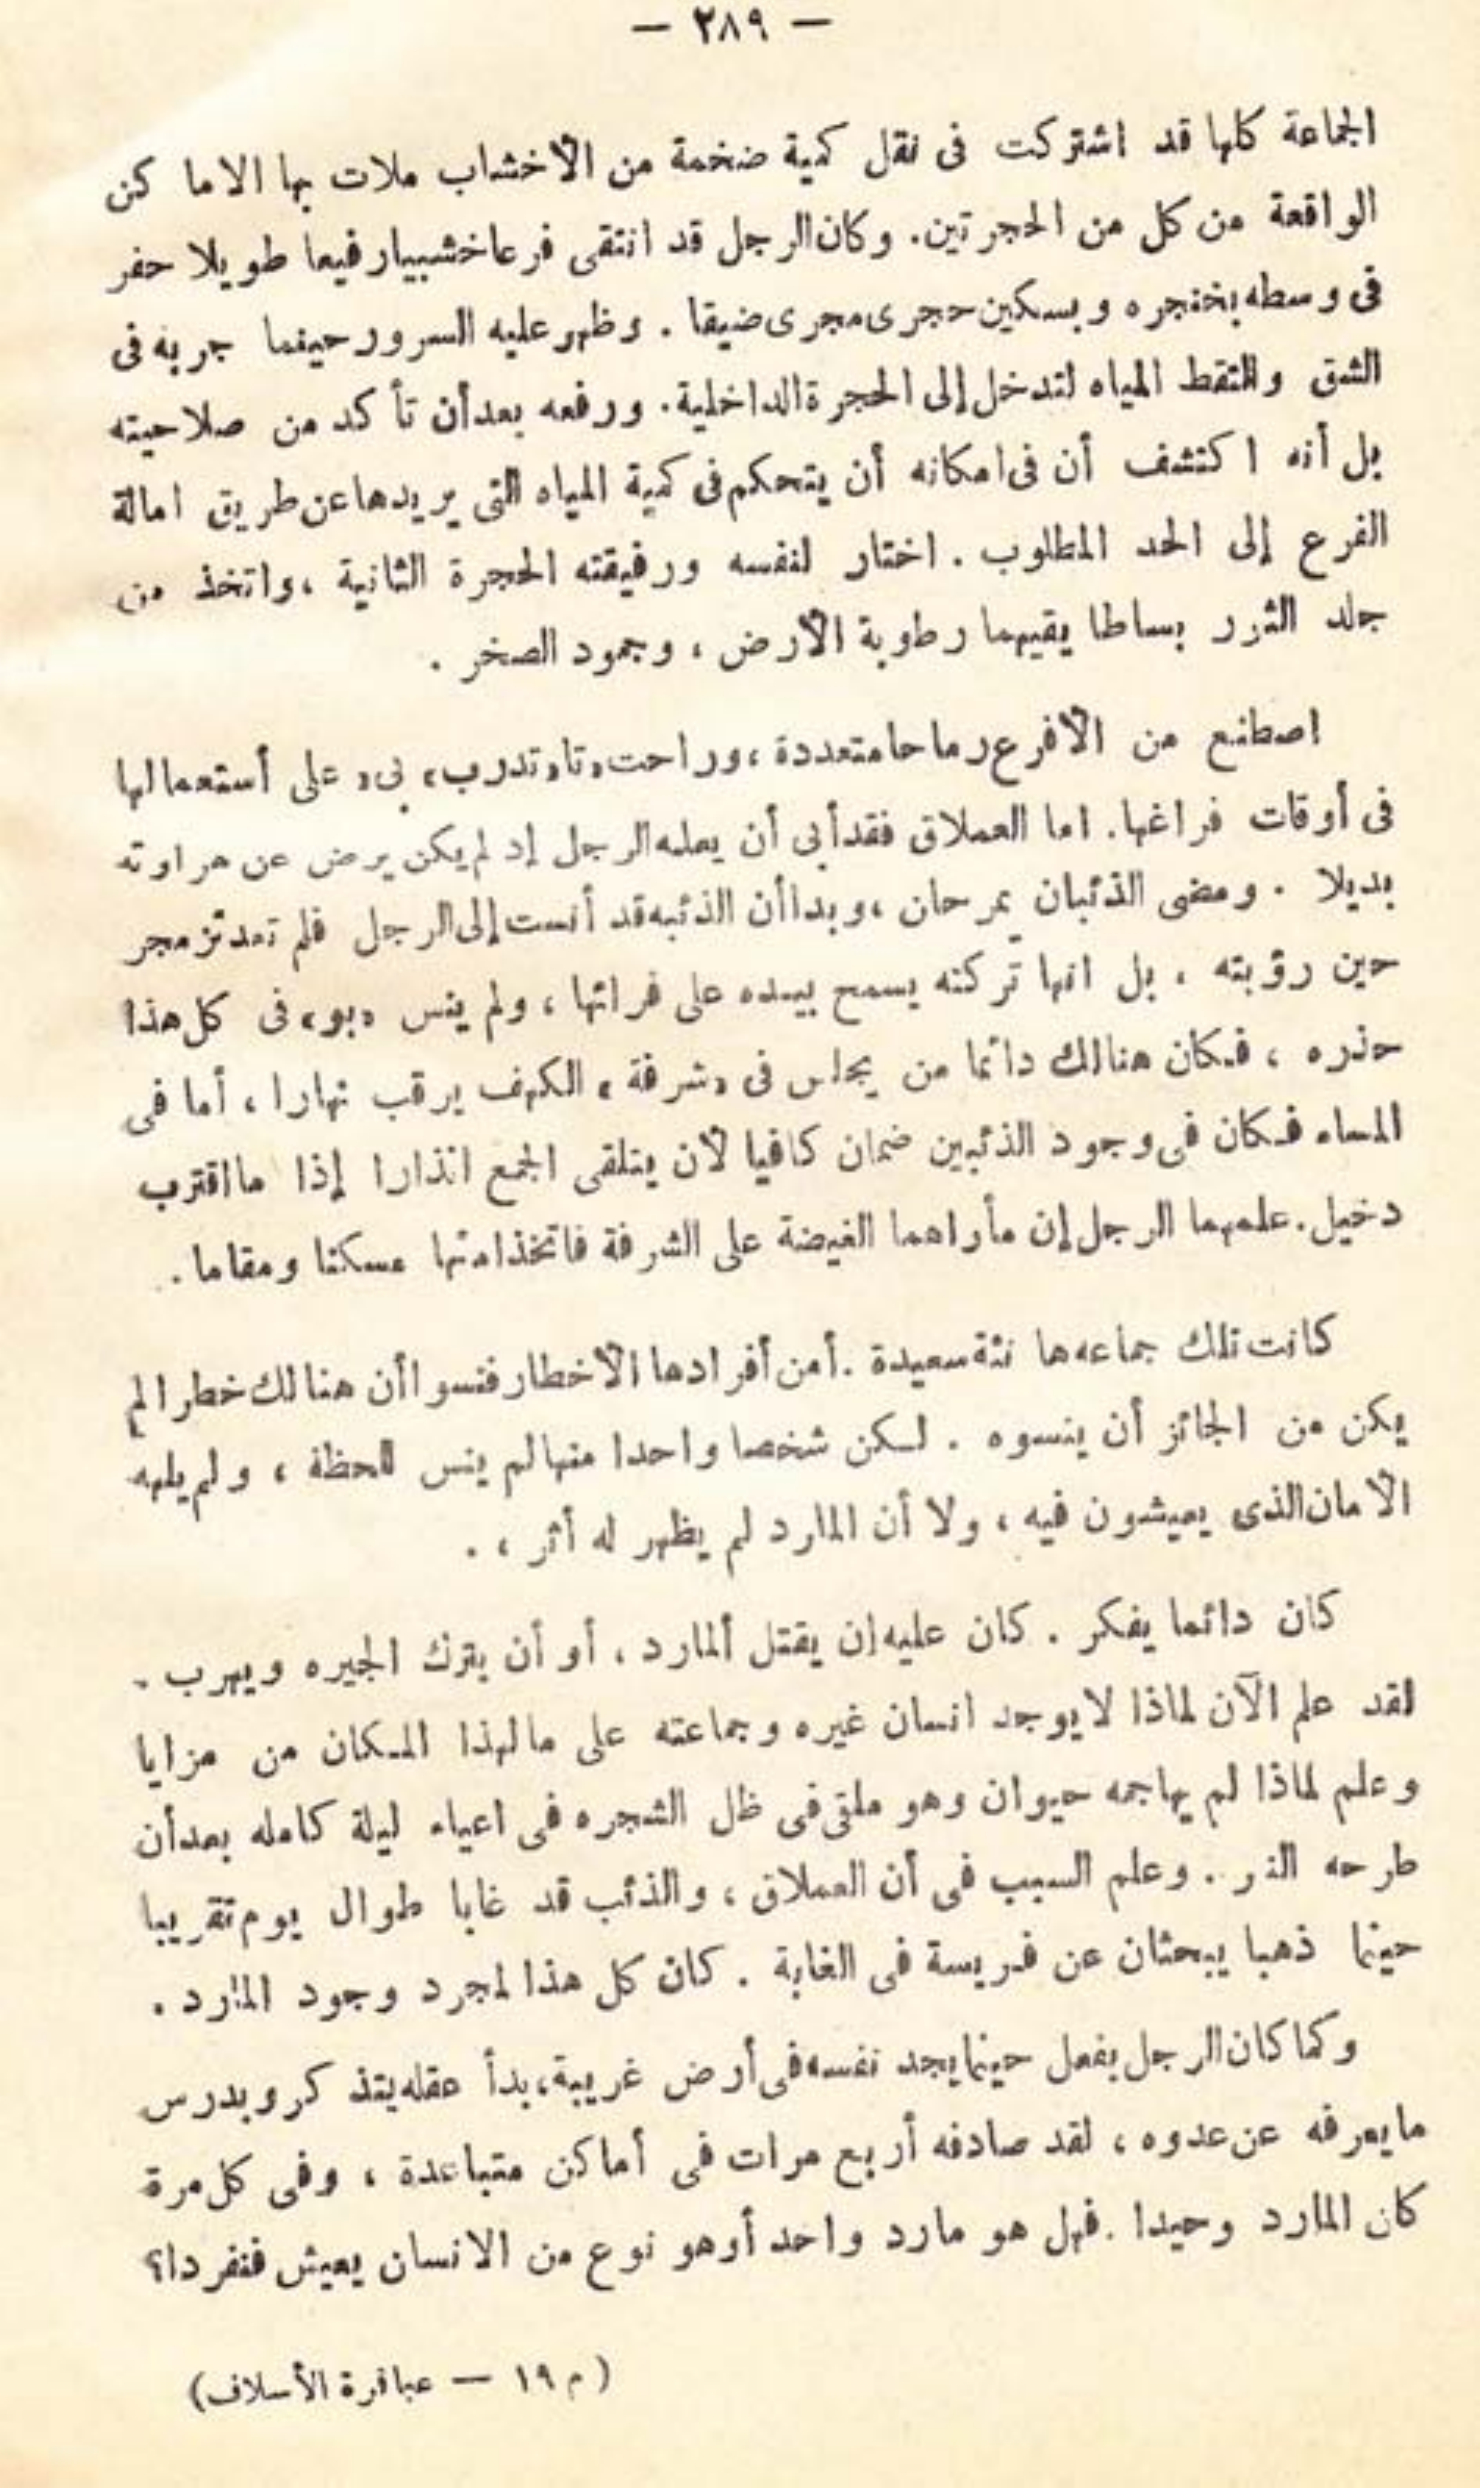 — ٢٨٩ —
الجماعة كلها قد اشتركت فى نقل كمية ضخمة من الأخشاب ملات بها الاما كن
الواقعة من كل من الحجرتين. وكان الرجل قد انتقى فرعا خشبيا رفيعا طويلا حفر
فى وسطه بخنجره وبسكين حجرى مجرى ضيقا . وظهر عليه السرور حينما جربه فى
الشق والتقط المياه لتدخل إلى الحجرة الداخلية. ورفعه بعد أن تأكد من صلاحيته
بل أنه اكتشف أن فى امكانه أن يتحكم فى كمية المياه التى يريدها عن طريق امالة
الفرع إلى الحد المطلوب . اختار لنفسه ورفيقته الحجرة الثانية ، واتخذ من
جلد الثرر بساطا يقيهما رطوبة الأرض ، وجمود الصخر .
اصطنع من الأفرع رماحا متعددة ، وراحت «تا» تدرب «بى» على أستعمالها
فى أوقات فراغها. اما العملاق فقد أبى أن يعلمه الرجل إد لم يكن يرض عن هراوته
بديلا . ومضى الذئبان يمرحان ، وبدا أن الذئبه قد أنست إلى الرجل فلم تعد تزمجر
حين رؤبته . بل انها تركته يسمح بيده على فرائها ، ولم ينس «بو» فى كل هذا
حذره ، فكان هنالك دائما من يجلس فى «شرفة» الكهف يرقب نهارا ، أما فى
المساء فكان فى وجود الذئبين ضمان كافيا لأن يتلقى الجمع انذارا إذا ما اقترب
دخيل. علمهما الرجل إن مأراهما الغيضة على الشرفة فاتخذا منها مسكنا ومقاما .
كانت تلك جماعه ها نئة سعيدة . أمن أفرادها الأخطار فنسوا أن هنالك خطرا لم
يكن من الجائز أن ينسوه . لكن شخصا واحدا منها لم ينس للحظة ، ولم يلهه
الأمان الذى يعيشون فيه ، ولا أن المارد لم يظهر له أثر ، .
كان دائما يفكر . كان عليه إن يقتل ألمارد ، أو أن يترك الجيره ويهرب .
لقد علم الآن لماذا لا يوجد انسان غيره وجماعته على ما لهذا المكان من مزايا
وعلم لماذا لم يهاجمه حيوان وهو ملقى فى ظل الشجره فى اعياء ليلة كامله بعد أن
طرحه النر . وعلم السبب فى أن العملاق ، والذئب قد غابا طوال يوم تقريبا
حينما ذهبا يبحثان عن فريسة فى الغابة . كان كل هذا لمجرد وجود المارد .
وكما كان الرجل يفعل حينما يجد نفسه فى أرض غريبة ، بدأ عقله يتذكر ويدرس
ما يعرفه عن عدوه ، لقد صادفه أربع مرات فى أماكن متباعدة ، وفى كل مرة
كان المارد وحيدا . فهل هو مارد واحد أو هو نوع من الانسان يعيش فنفردا؟
(م ١٩ — عباقرة الأسلاف)